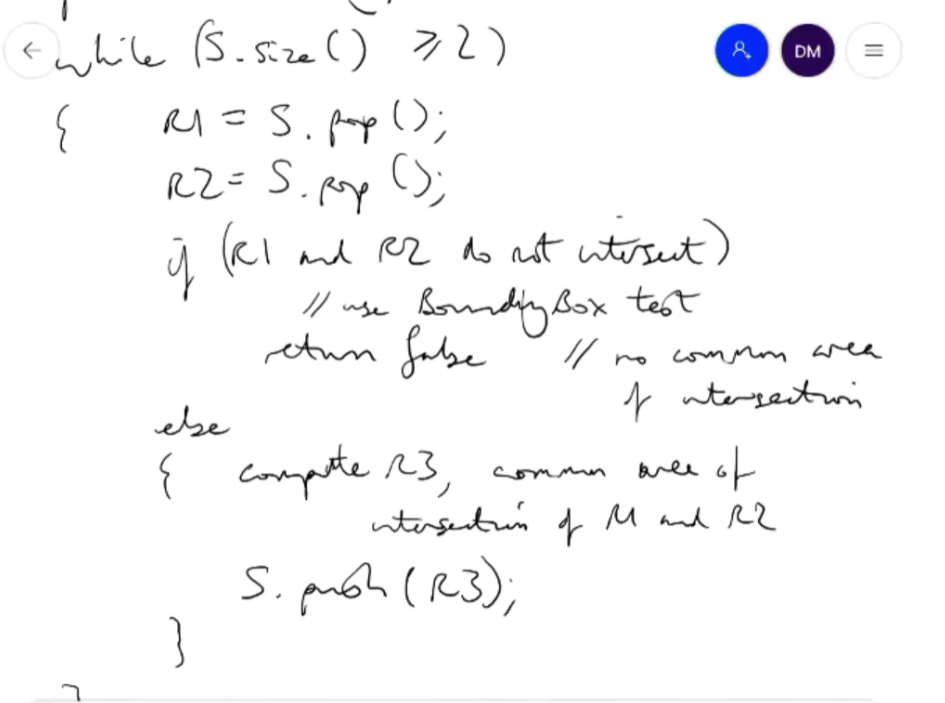 while (S.size() ≥ 2)
DM
{ R1 = S.pop();
R2 = S.pop();
if (R1 and R2 do not intersect)
// use BoundingBox test
return false // no common area
of intersection
else
{ compute R3, common area of
intersection of R1 and R2
S.push(R3);
}
}